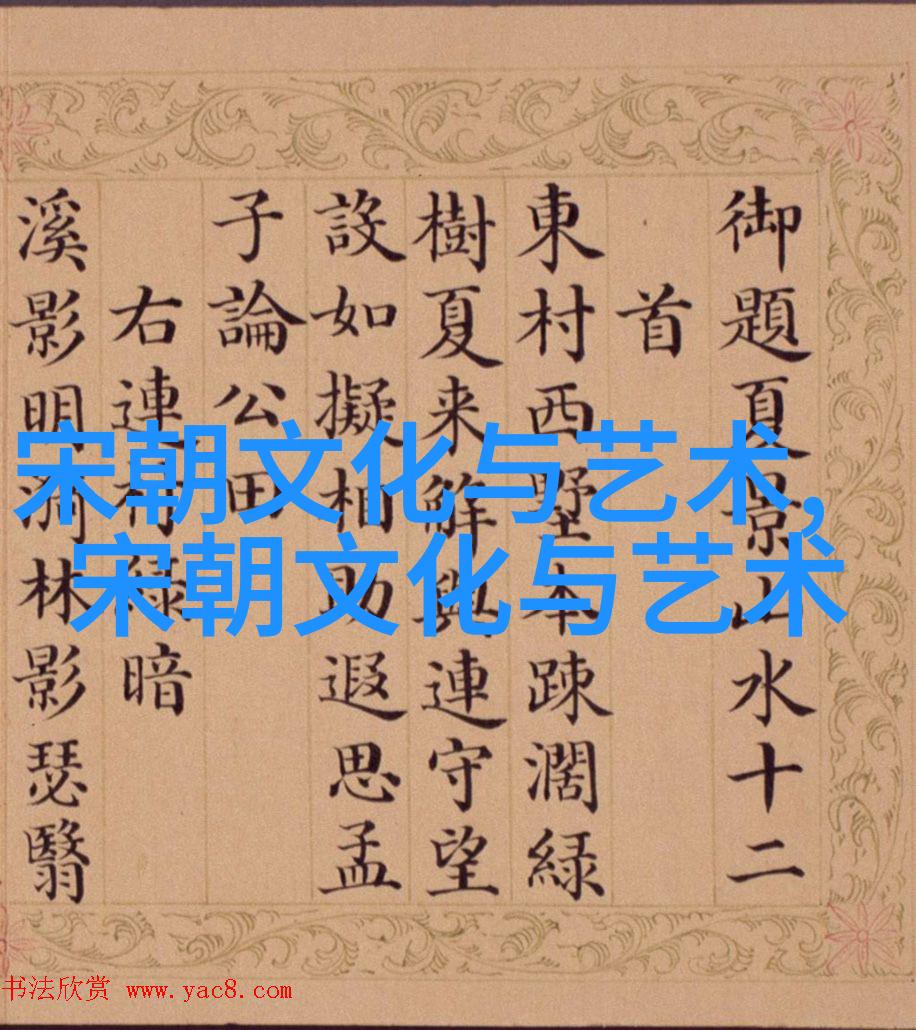 御題夏景山水十二
首
東村西墅本疎濶緑
樹夏来解與連守望
設如擬相助遐思孟
子論公田
右連村緑暗
溪影明漪林影瑟翳
宋朝文化与艺术,
宋朝文化与艺术
书法欣赏 www.yac8.com